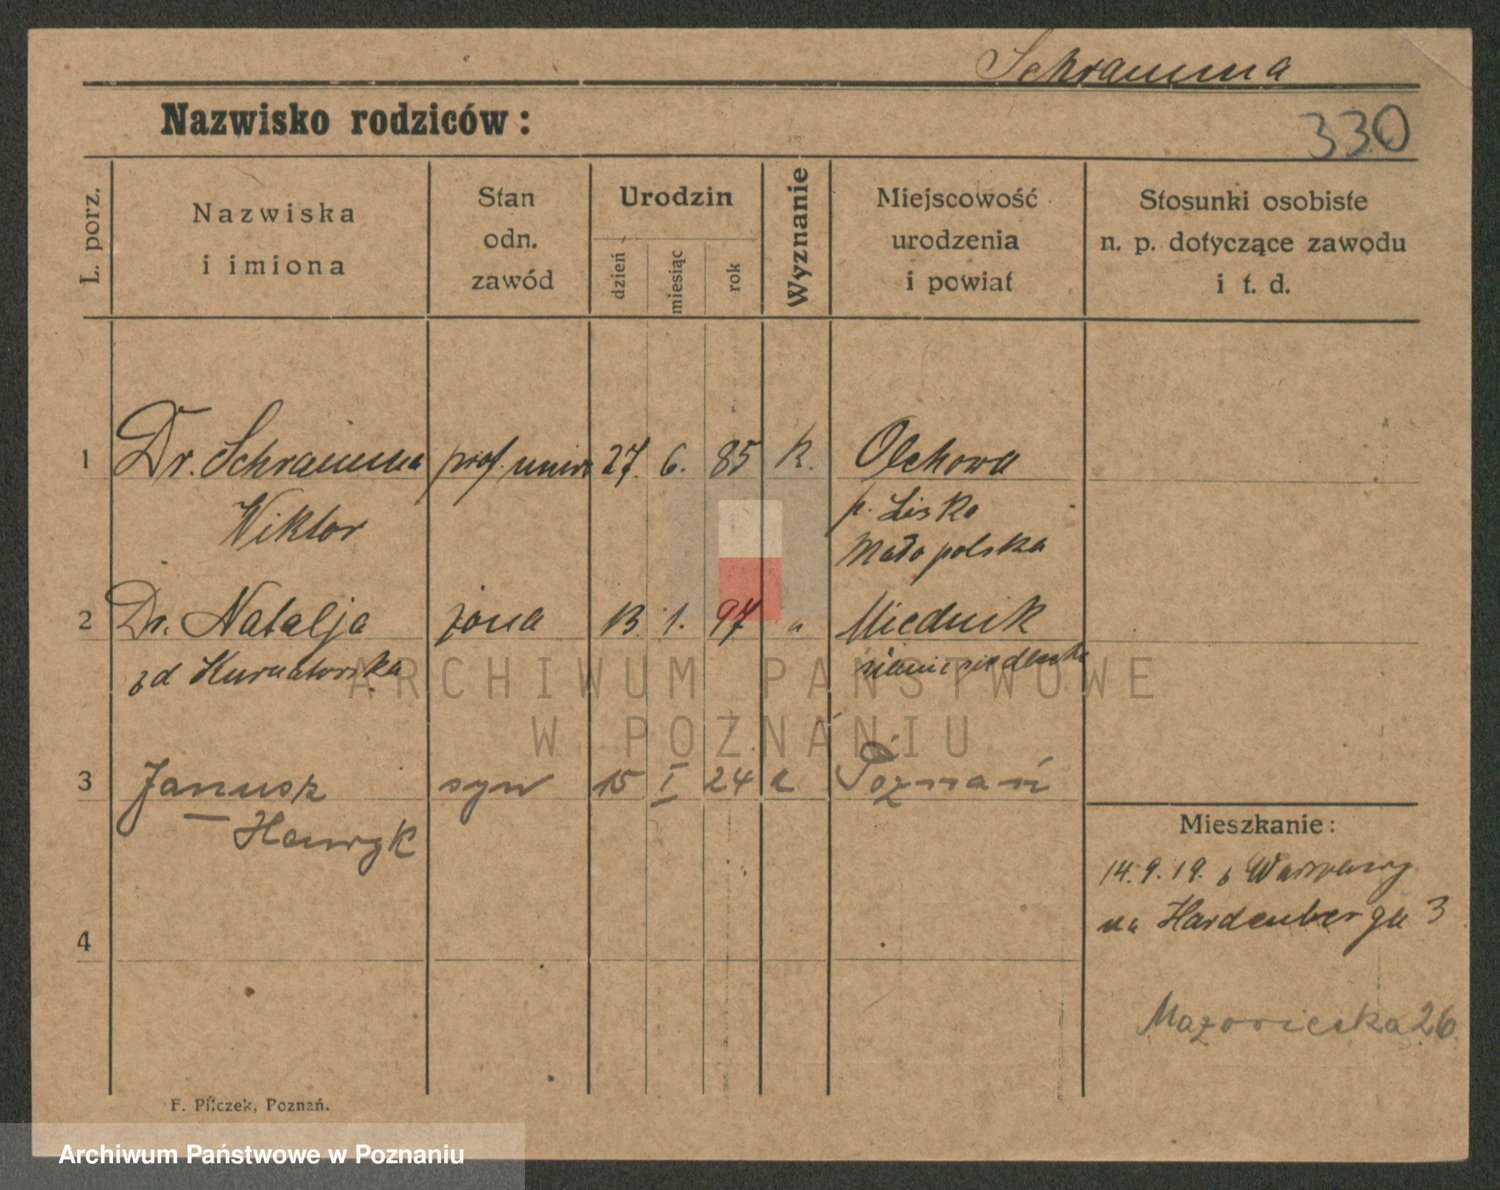 Schramma
Nazwisko rodziców:
330
L. porz.
Nazwiska
i imiona
Stan
odn.
zawód
Urodzin
dzień
miesiąc
rok
Wyznanie
Miejscowość
urodzenia
i powiat
Stosunki osobiste
n. p. dotyczące zawodu
i t. d.
1 Dr. Schramma prof. uniw 27. 6. 85 k. Olchowa
Wiktor p. Lisko
Małopolska
2 Dr. Natalja żona 13. 1. 97 " Miednik
zd Kurnatowska ziemi siedlecka
ARCHIWUM PAŃSTWOWE
W POZNANIU
3 Janusz syn 15 I 24 k Poznań
Henryk
Mieszkanie:
14. 9. 19. z Warszawy
na Hardenberga 3
4
Mazowiecka 26
F. Pilczek, Poznań.
Archiwum Państwowe w Poznaniu